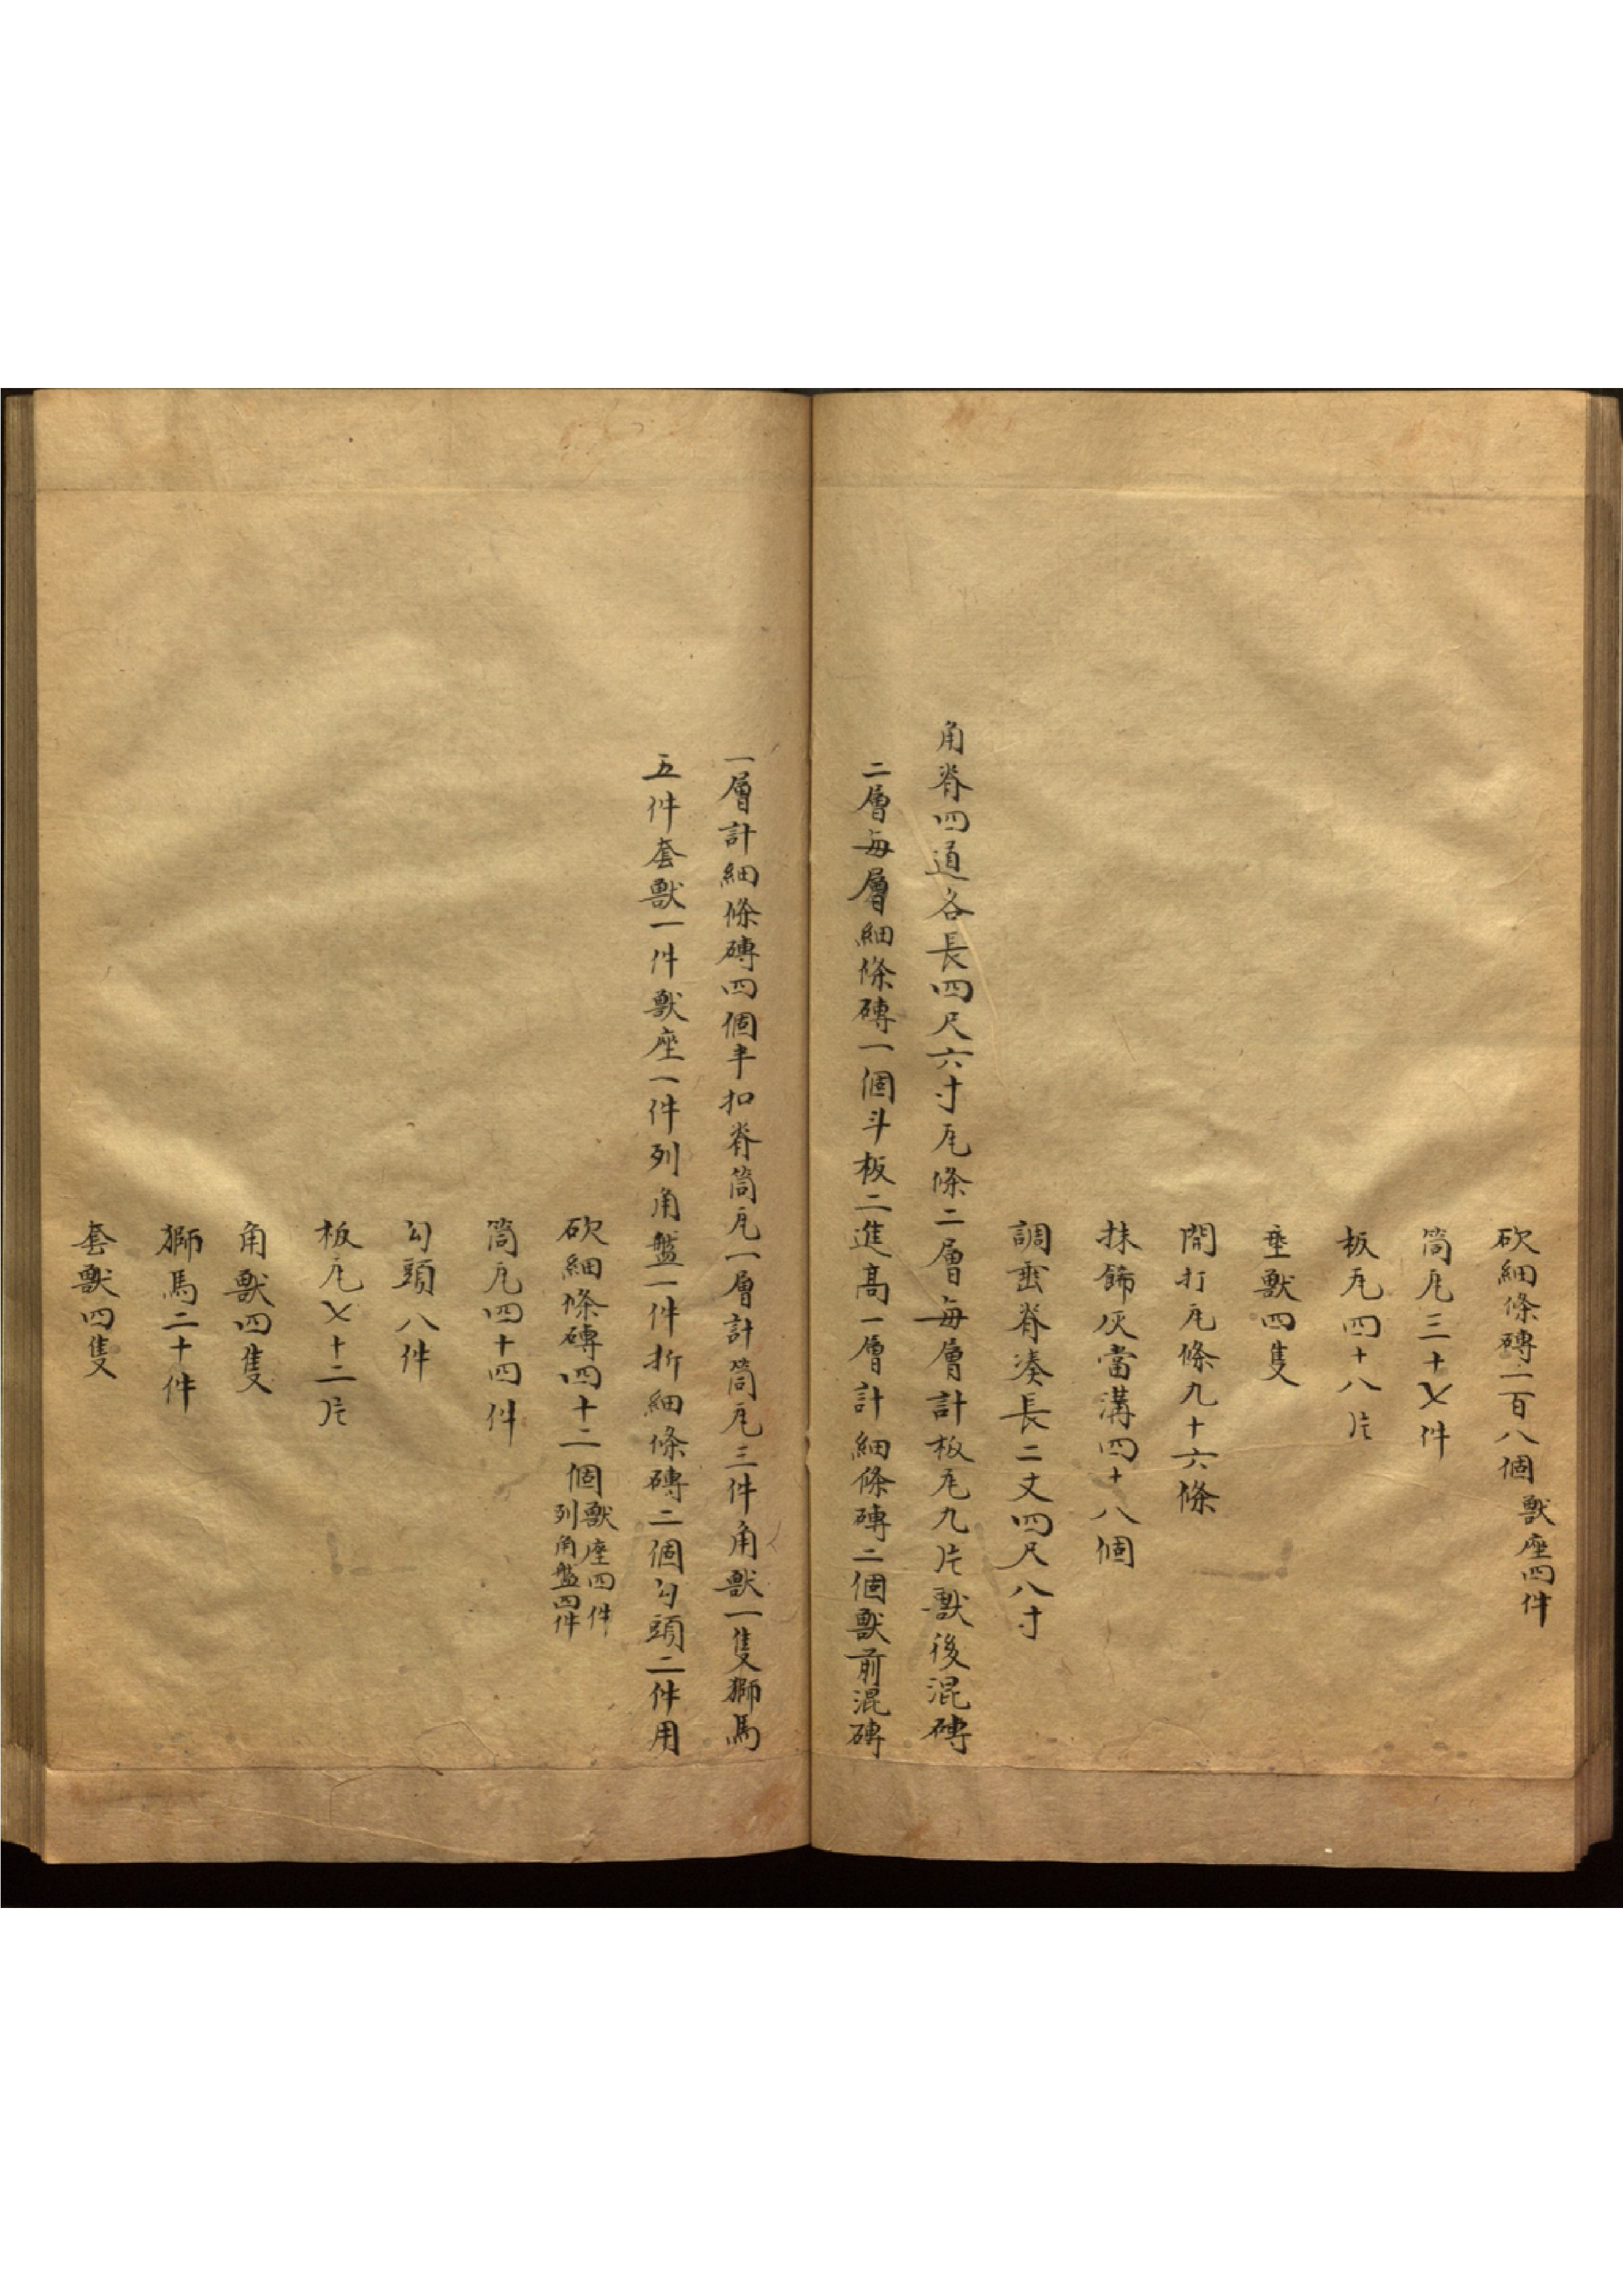 砍細條磚一百八個獸座四件
筒瓦三十七件
板瓦四十八片
垂獸四隻
開打瓦條九十六條
抹飾灰當溝四十八個
調垂脊湊長二丈四尺八寸
角脊四道各長四尺六寸瓦條二層每層計板瓦九片獸後混磚
二層每層細條磚一個斗板二進高一層計細條磚二個獸前混磚
一層計細條磚四個半扣脊筒瓦一層計筒瓦三件角獸一隻獅馬
五件套獸一件獸座一件列角盤一件折細條磚二個勾頭二件用
砍細條磚四十二個獸座四件列角盤四件
筒瓦四十四件
勾頭八件
板瓦七十二片
角獸四隻
獅馬二十件
套獸四隻